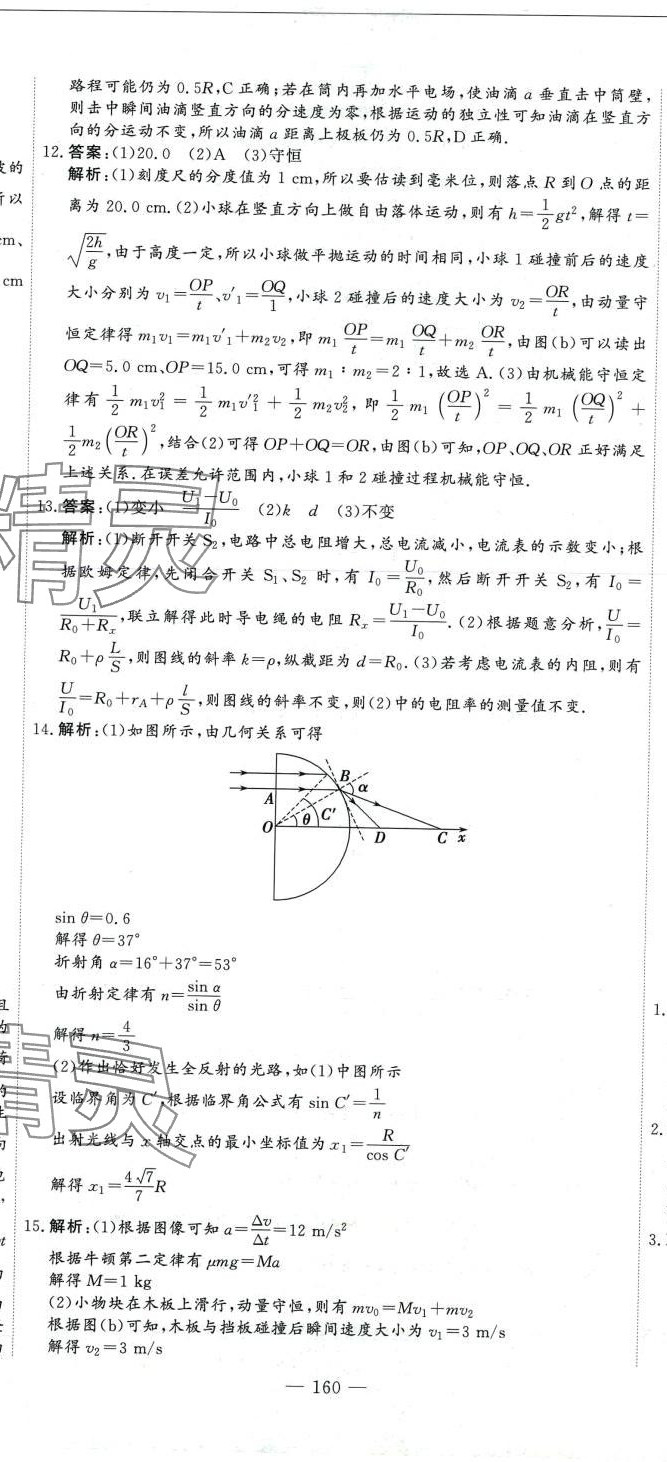 路程可能仍为 0.5R,C 正确;若在筒内再加水平电场,使油滴 a 垂直击中筒壁,
则击中瞬间油滴竖直方向的分速度为零,根据运动的独立性可知油滴在竖直方
向的分运动不变,所以油滴 a 距离上极板仍为 0.5R,D 正确.
12. 答案:(1)20.0 (2)A (3)守恒
解析:(1)刻度尺的分度值为 1 cm,所以要估读到毫米位,则落点 R 到 O 点的距
离为 20.0 cm. (2)小球在竖直方向上做自由落体运动,则有 h=1/2 gt²,解得 t=
√(2h/g),由于高度一定,所以小球做平抛运动的时间相同,小球 1 碰撞前后的速度
大小分别为 v₁=OP/t、v′₁=OQ/1,小球 2 碰撞后的速度大小为 v₂=OR/t,由动量守
恒定律得 m₁v₁=m₁v′₁+m₂v₂,即 m₁ OP/t=m₁ OQ/t+m₂ OR/t,由图(b)可以读出
OQ=5.0 cm、OP=15.0 cm,可得 m₁:m₂=2:1,故选 A. (3)由机械能守恒定
律有 1/2 m₁v₁² = 1/2 m₁v′₁² + 1/2 m₂v₂²,即 1/2 m₁ (OP/t)² = 1/2 m₁ (OQ/t)² +
1/2 m₂(OR/t)²,结合(2)可得 OP+OQ=OR,由图(b)可知,OP、OQ、OR 正好满足
上述关系.在误差允许范围内,小球 1 和 2 碰撞过程机械能守恒.
13. 答案:(1)变小 (U₁−U₀)/I₀ (2)k d (3)不变
解析:(1)断开开关 S₂,电路中总电阻增大,总电流减小,电流表的示数变小;根
据欧姆定律,先闭合开关 S₁、S₂ 时,有 I₀=U₀/R₀,然后断开开关 S₂,有 I₀=
U₁/(R₀+Rₓ),联立解得此时导电绳的电阻 Rₓ=(U₁−U₀)/I₀. (2)根据题意分析,U/I₀=
R₀+ρ L/S,则图线的斜率 k=ρ,纵截距为 d=R₀. (3)若考虑电流表的内阻,则有
U/I₀=R₀+r_A+ρ l/S,则图线的斜率不变,则(2)中的电阻率的测量值不变.
14. 解析:(1)如图所示,由几何关系可得
B
α
A
C′
θ
O
D
C
x
sin θ=0.6
解得 θ=37°
折射角 α=16°+37°=53°
由折射定律有 n=sin α/sin θ
解得 n=4/3
(2)作出恰好发生全反射的光路,如(1)中图所示
设临界角为 C′,根据临界角公式有 sin C′=1/n
出射光线与 x 轴交点的最小坐标值为 x₁=R/cos C′
解得 x₁=4√7/7 R
15. 解析:(1)根据图像可知 a=Δv/Δt=12 m/s²
根据牛顿第二定律有 μmg=Ma
解得 M=1 kg
(2)小物块在木板上滑行,动量守恒,则有 mv₀=Mv₁+mv₂
根据图(b)可知,木板与挡板碰撞后瞬间速度大小为 v₁=3 m/s
解得 v₂=3 m/s
— 160 —
精灵
精灵
的
以
cm、
cm
1.
2.
3.